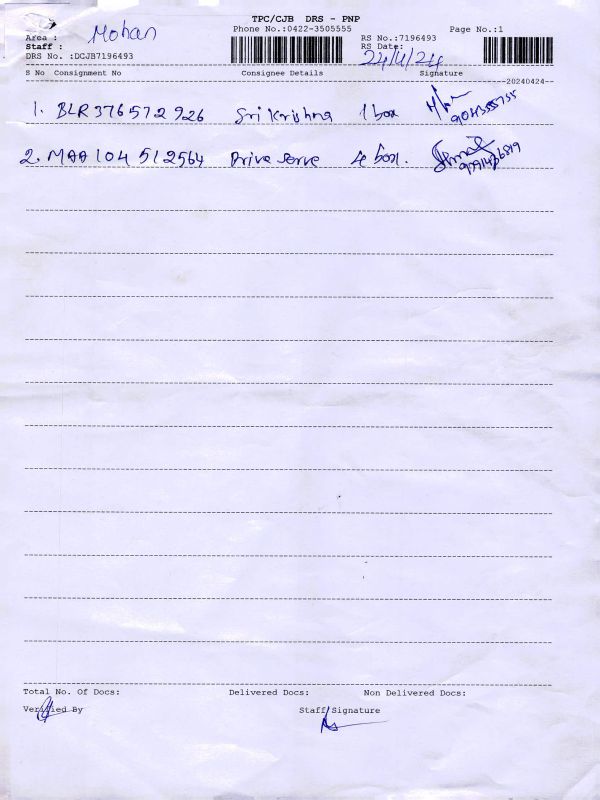 TPC/CJB DRS - PNP
Area : Mohan Phone No.:0422-3505555 RS No.:7196493 Page No.:1
Staff : RS Date: 24/4/24
DRS No. :DCJB7196493
S No Consignment No Consignee Details Signature
20240424
1. BLR 376572926 Sri Krishna 1 box
2. MAA 104 512564 Drive serve 4 box.
Total No. Of Docs: Delivered Docs: Non Delivered Docs:
Verified By Staff Signature